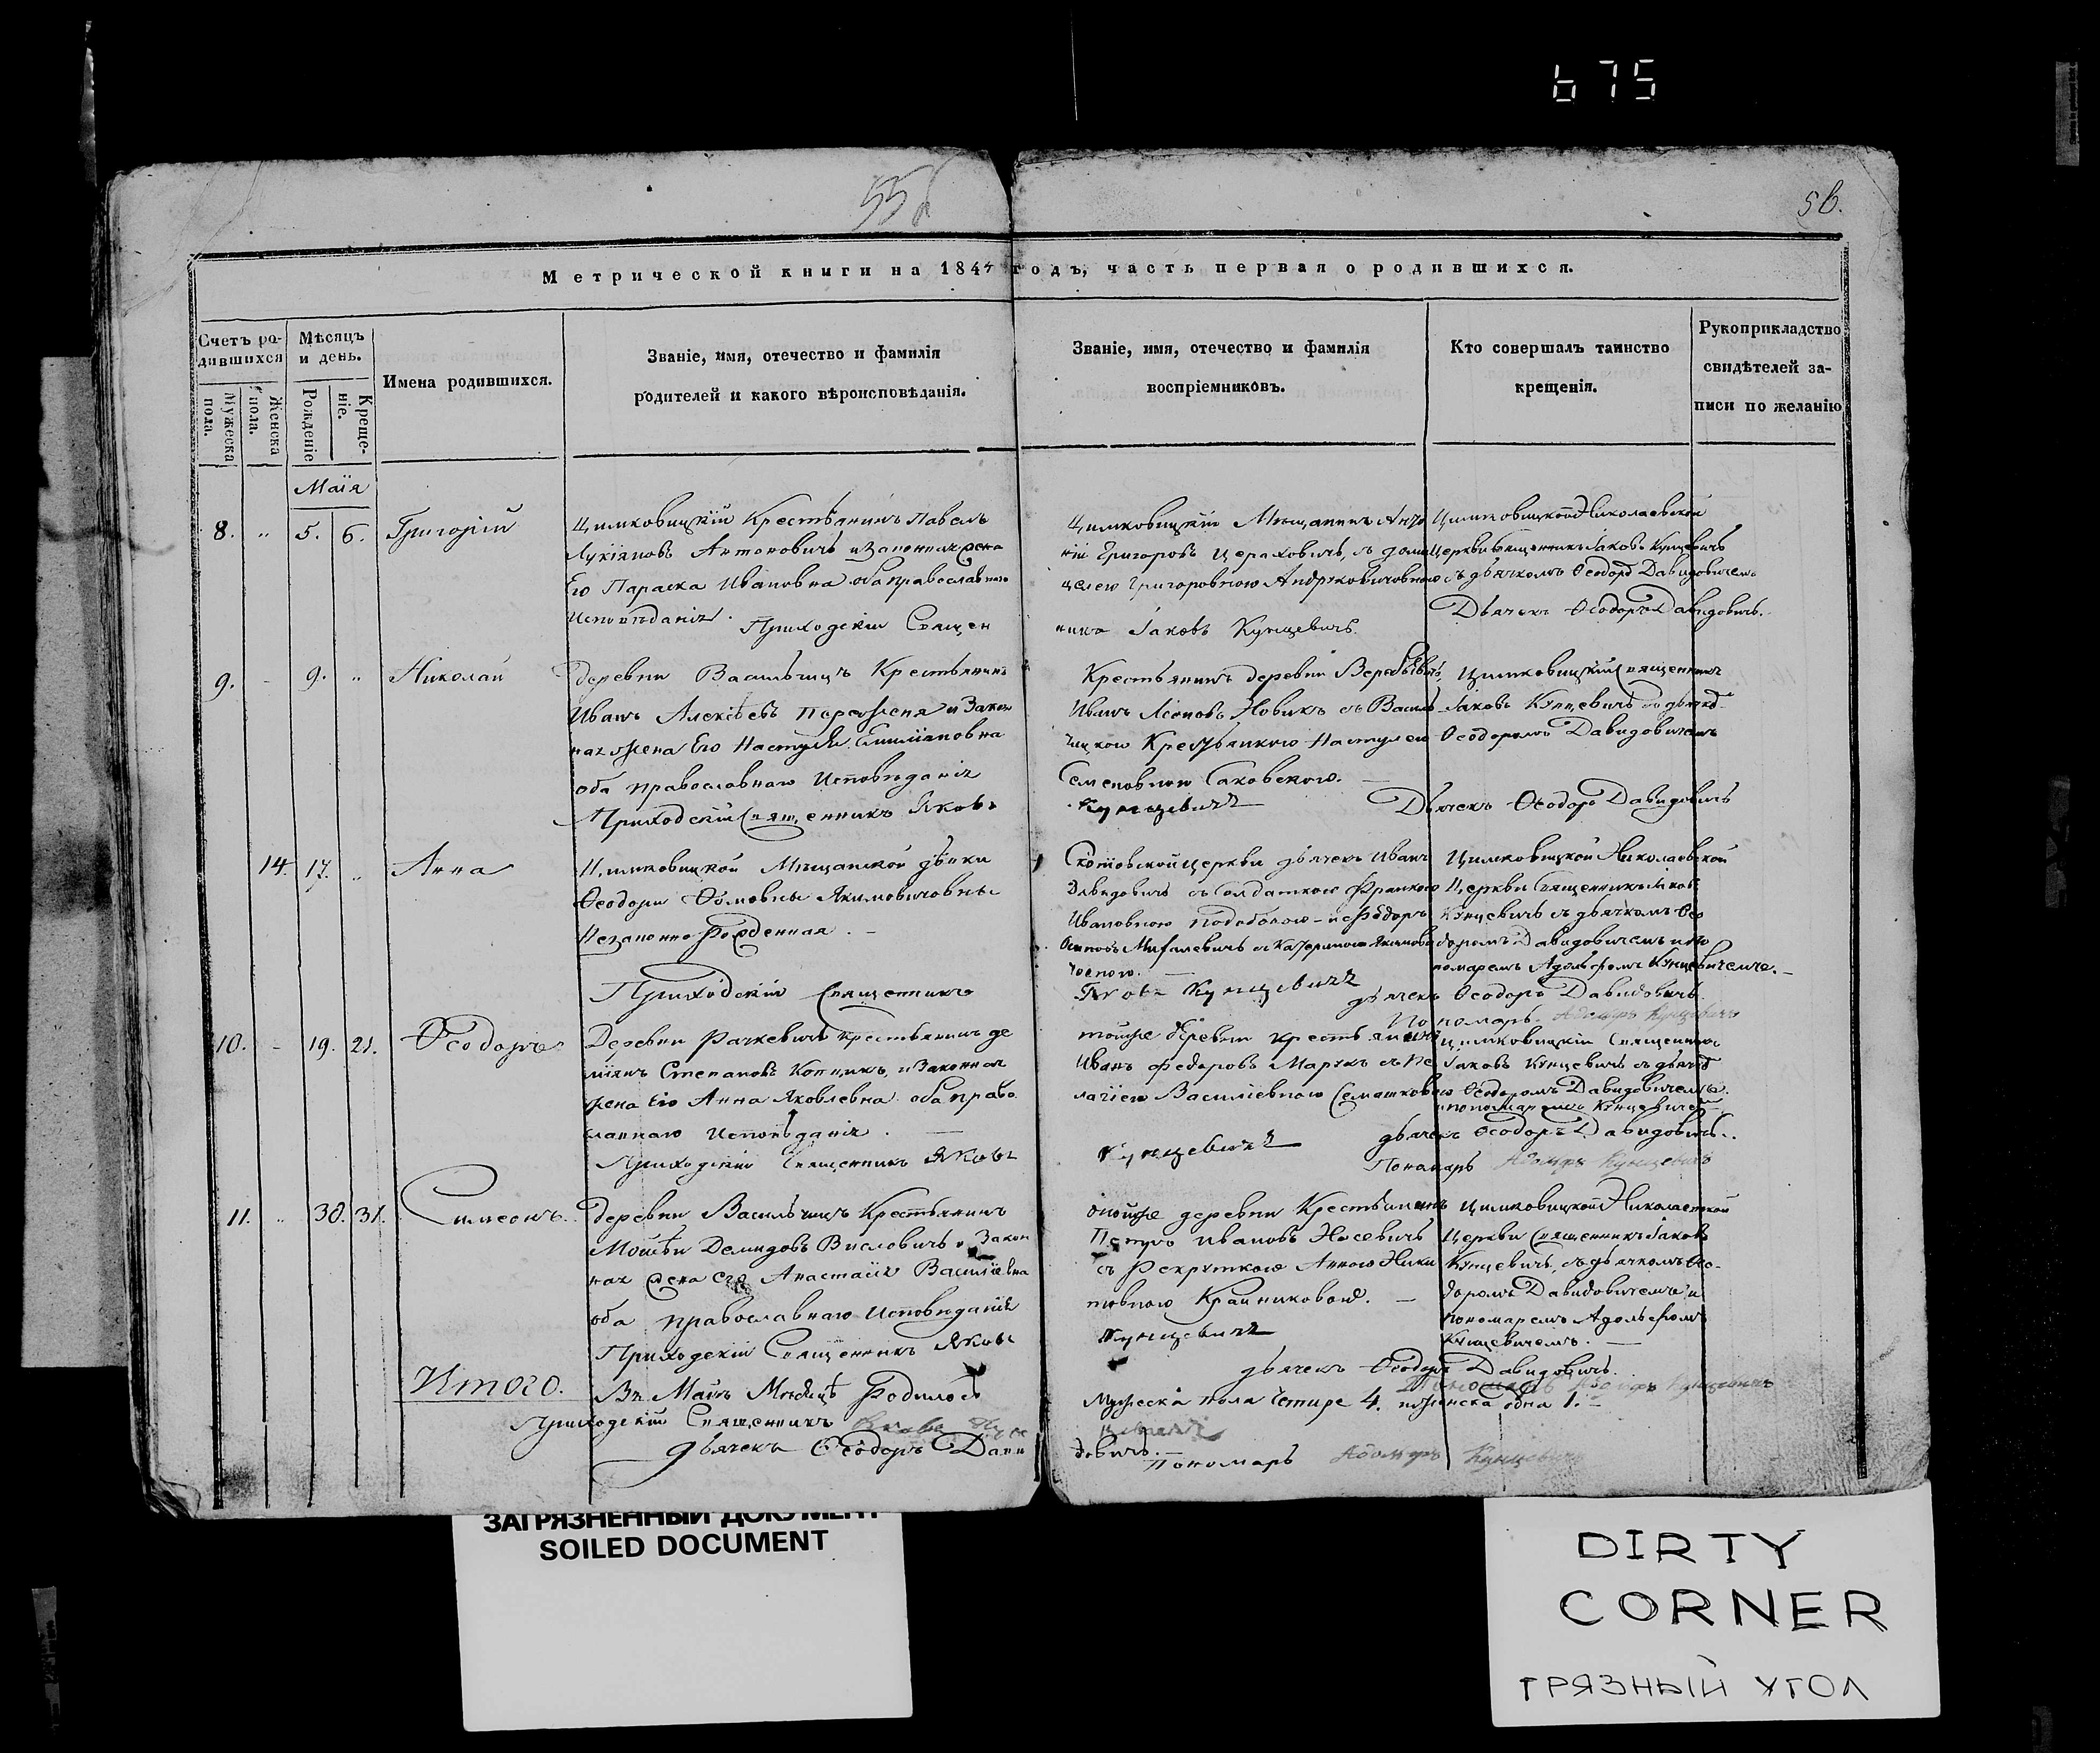 675
55
56.
Метрической книги на 1844 годъ, часть первая о родившихся.
Счетъ родившихся
Мужеска пола.
Женска пола.
Мѣсяцъ и день.
Рожденіе
Крещеніе.
Имена родившихся.
Званіе, имя, отечество и фамилія
родителей и какого вѣроисповѣданія.
Званіе, имя, отечество и фамилія
воспріемниковъ.
Кто совершалъ таинство
крещенія.
Рукоприкладство
свидѣтелей за-
писи по желанію
Маія
8. „ 5. 6. Григорій
Цимковицкій Крестьянинъ Павелъ
Лукіяновъ Антоновичъ и Законная жена
Его Параска Ивановна оба православнаго
Исповѣданія.
Приходскій Священ
Цимковицкій Мещанинъ Анто
ній Григоровъ Цераховичъ, съ
Григоровною
никъ Іаковъ Кунцевичъ
Цимковицкой Николаевской
Церкви Священникъ Іаковъ Кунцевичъ
съ дьячкомъ Ѳеодоръ Давидовичемъ
Дьячекъ Ѳеодоръ Давидовичъ.
9. - 9. „ Николай
деревни Васильчицъ Крестьянинъ
Иванъ Алексѣевъ и Закон
ная жена Его Настуля
оба православнаго Исповѣданія
Приходскій Священникъ Яковъ
Крестьянинъ деревни
Иванъ Новикъ съ Василь
чицкою Крестьянкою Настулею
Семеновною Саковскою.
Кунцевичъ
Цимковицкій Священникъ
Іаковъ Кунцевичъ
Ѳеодоромъ Давидовичемъ
Дьячекъ Ѳеодоръ Давидовичъ
14. 17. „ Анна
Цимковицкой Мещанской дѣвки
Ѳеодоры Ѳомовны Якимовичовны
Незаконно Рожденная. -
Приходскій Священникъ
церкви дьячекъ Иванъ
Давидовичъ съ Солдаткою
Ивановною
Яковъ Кунцевичъ
Цимковицкой Николаевской
Церкви Священникъ Іаковъ
Кунцевичъ съ дьячкомъ Ѳео
доромъ Давидовичемъ и по
номаремъ Адольфомъ Кунцевичемъ. -
дьячекъ Ѳеодоръ Давидовичъ
Пономарь Кунцевичъ
10. - 19. 21. Ѳеодоръ
Деревни Рачкевичъ крестьянинъ де
міянъ Степановъ и Законная
жена Его Анна Яковлевна оба право
славнаго Исповѣданія. -
Приходскій Священникъ Яковъ
тойже деревни крестьянинъ
Иванъ Федоровъ Марукъ съ Пе
лагіею Василіевною Семашковою
Кунцевичъ
Цимковицкій Священникъ
Іаковъ Кунцевичъ съ
Ѳеодоромъ Давидовичемъ.
и пономаремъ Кунцевичемъ
дьячекъ Ѳеодоръ Давидовичъ.
Пономарь Кунцевичъ
11. „ 30. 31. Симеонъ.
деревни Васильчицъ Крестьянинъ
Демидовъ Висловичъ и Закон
ная жена его Анастасія Василіевна
оба православнаго Исповѣданія
Приходскій Священникъ Яковъ
тойже деревни Крестьянинъ
Петръ Ивановъ Носевичъ
съ Рекруткою Анною Ники
тивною
Кунцевичъ
Цимковицкой Николаевской
Церкви Священникъ Іаковъ
Кунцевичъ, съ дьячкомъ Ѳео-
доромъ Давидовичемъ и
пономаремъ Адольфомъ
Кунцевичемъ. -
дьячекъ Ѳеодоръ Давидовичъ.
Итого.
Въ Маіѣ Мѣсяцѣ Родилось
Мужеска пола Четыре 4. и женска одна 1. -
Приходскій Священникъ
дьячекъ Ѳеодоръ Дави
довичъ. -
Пономарь Кунцевичъ
ЗАГРЯЗНЕННЫЙ ДОКУМЕНТ
SOILED DOCUMENT
DIRTY
CORNER
ГРЯЗНЫЙ УГОЛ